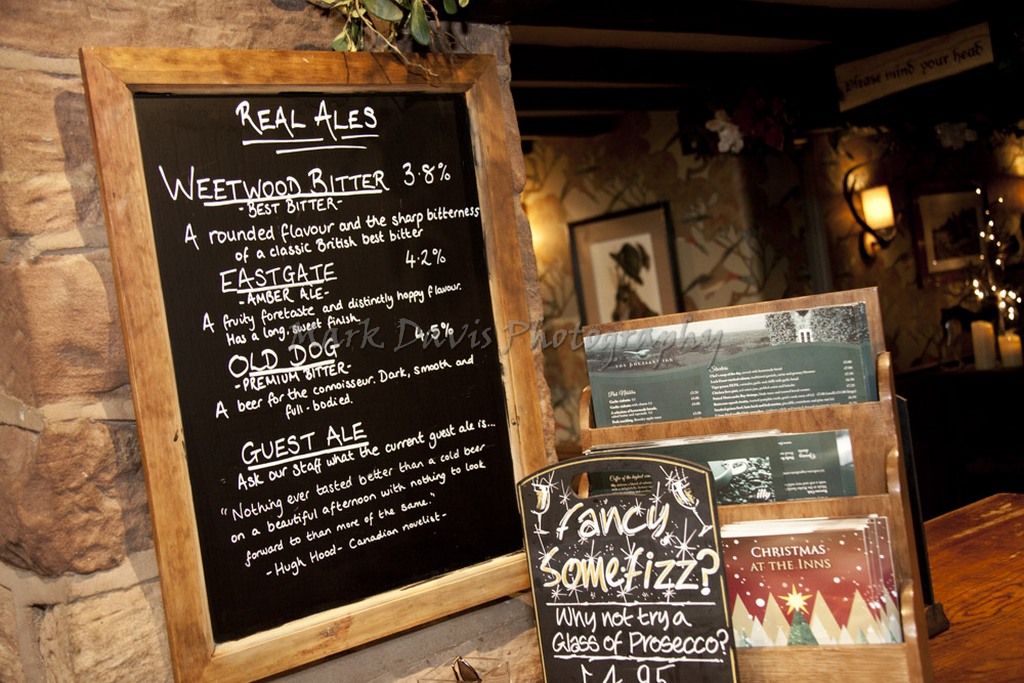 REAL ALES
WEETWOOD BITTER 3.8%
- BEST BITTER -
A rounded flavour and the sharp bitterness
of a classic British best bitter
EASTGATE 4.2%
- AMBER ALE -
A fruity foretaste and distinctly hoppy flavour.
Has a long, sweet finish.
OLD DOG 4.5%
- PREMIUM BITTER -
A beer for the connoisseur. Dark, smooth and
full-bodied.
GUEST ALE
Ask our staff what the current guest ale is...
"Nothing ever tasted better than a cold beer
on a beautiful afternoon with nothing to look
forward to than more of the same."
- Hugh Hood - Canadian novelist -
Mark Davis Photography
Please mind your head
illy
Fancy
Somefizz?
Why not try a
Glass of Prosecco?
£4.95
CHRISTMAS
AT THE INNS